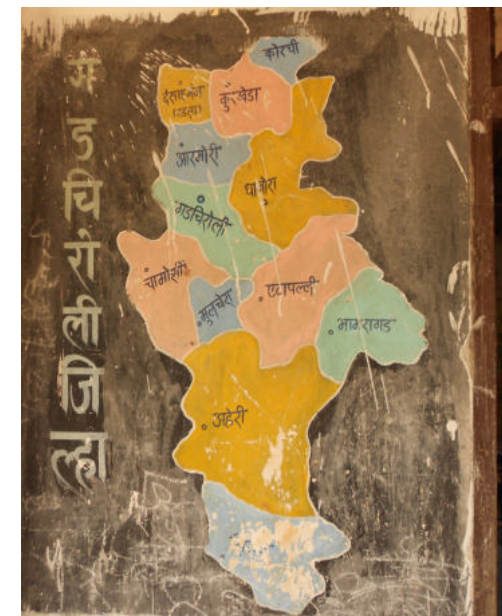 गडचिरोली जिल्हा
कोरची
कुरखेडा
देसाईगंज
(वडसा)
आरमोरी
धानोरा
गडचिरोली
चामोर्शी
मुलचेरा
एटापल्ली
भामरागड
अहेरी